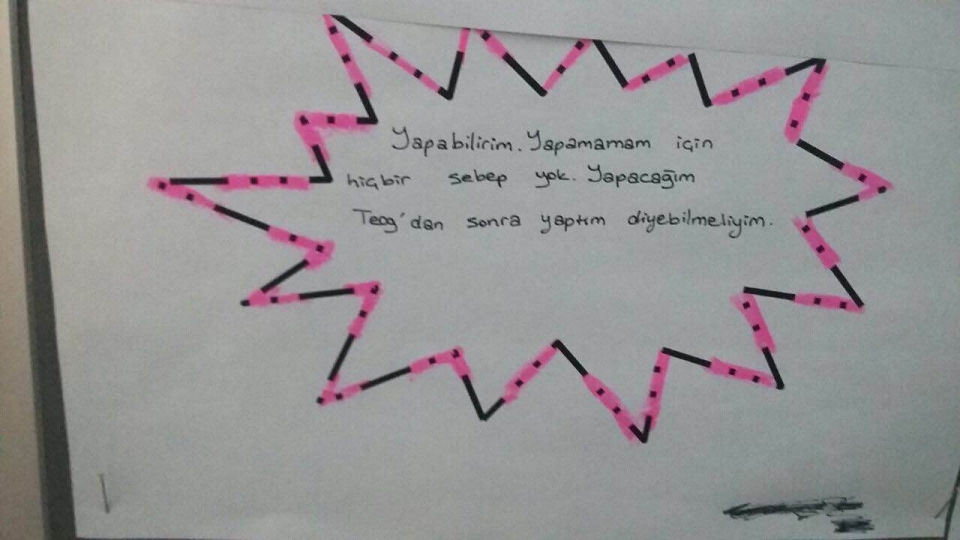 Yapabilirim. Yapamamam için
hiçbir sebep yok. Yapacağım
Teog'dan sonra yaptım diyebilmeliyim.